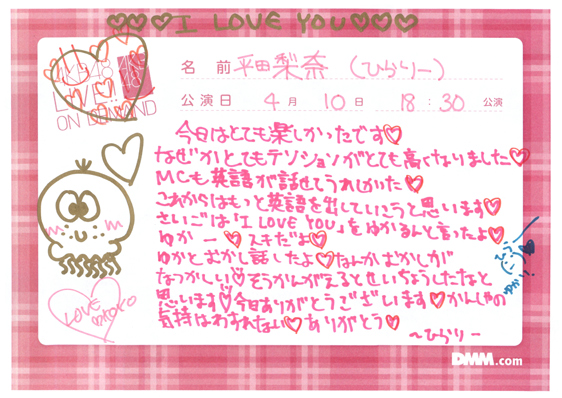 ♡♡♡I LOVE YOU♡♡♡
AKB48
LIVE!!
ON DEMAND
名 前 平田梨奈 (ひらりー)
公演日 4月 10日 18:30 公演
今日はとても楽しかったです♡
なぜかとてもテンションがとても高くなりました♡
MCも英語が話せてうれしかった♡
これからはもっと英語を出していこうと思います♡
さいごは「I LOVE YOU」をゆかるんと言ったよ♡
ゆかー♡スキだよ♡
ゆかとむかし話したよ♡なんかむかしが
なつかしい♡そうかんがえるとせいちょうしたなと
思います♡今日ありがとうございます♡かんしゃの
気持はわすれない♡ありがとう♡
〜ひらりー
LOVE
DMM.com